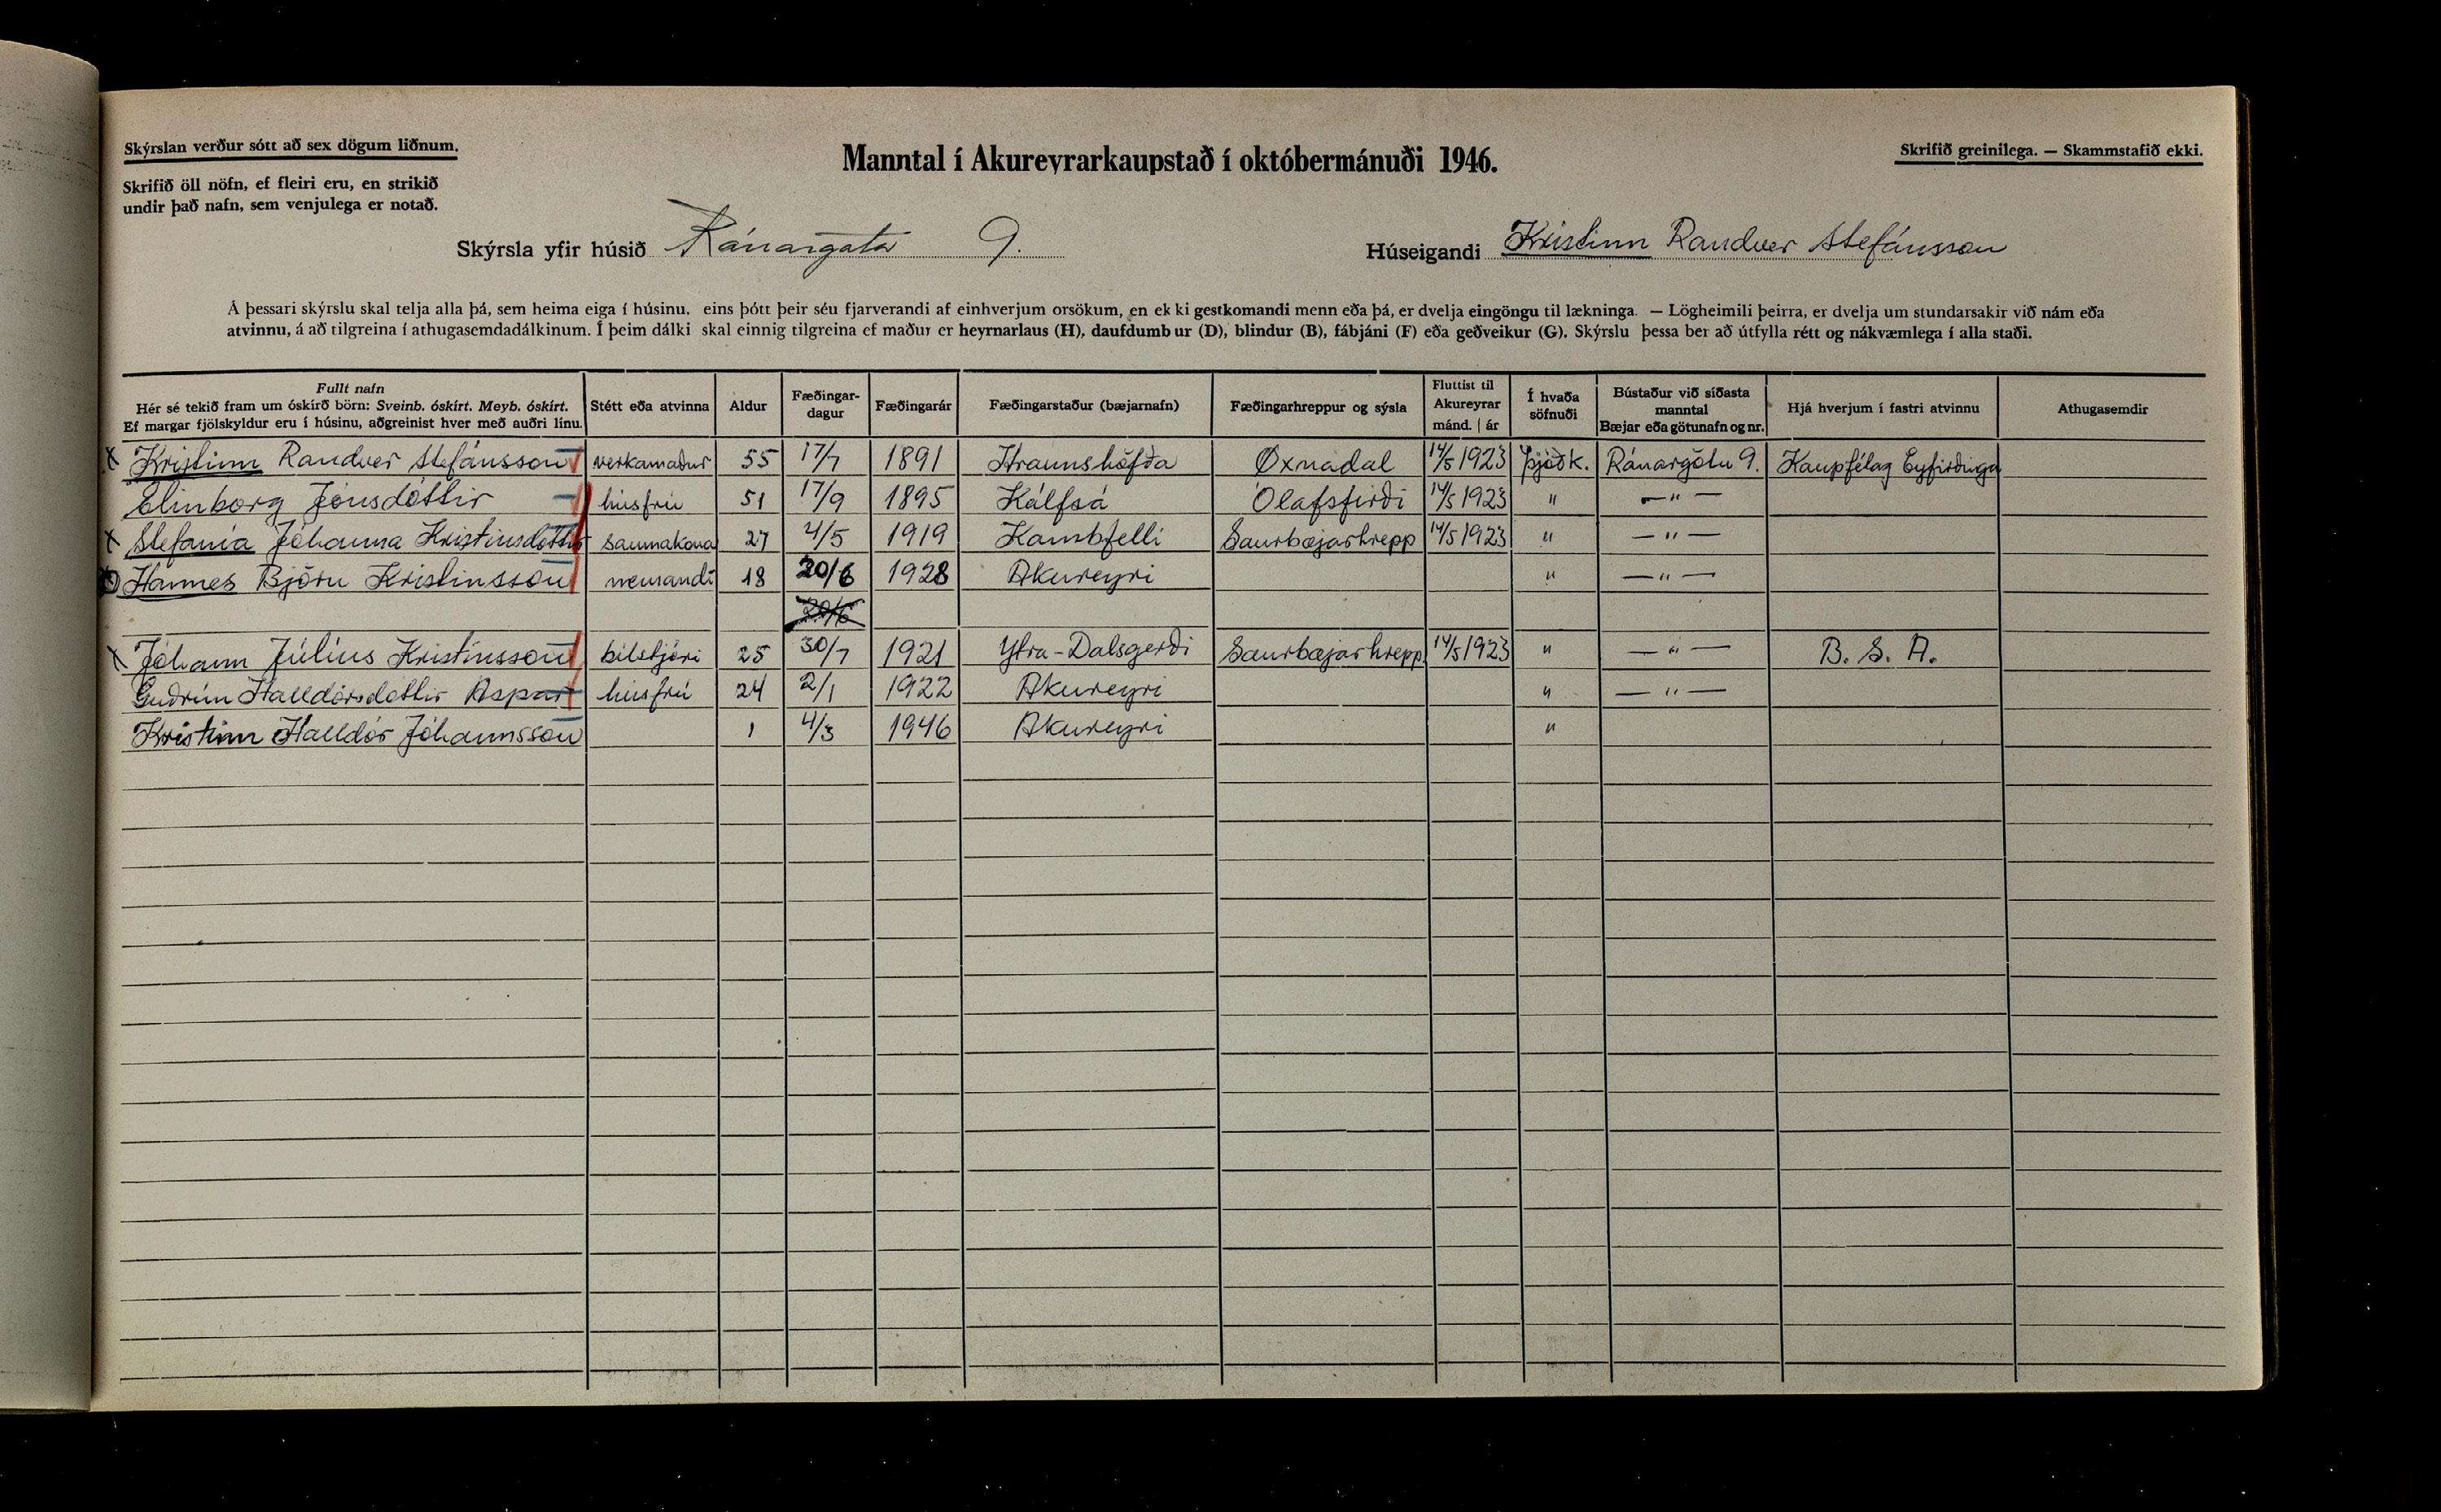 Skýrslan verður sótt að sex dögum liðnum.
Manntal í Akureyrarkaupstað í októbermánuði 1946.
Skrifið greinilega. — Skammstafið ekki.
Skrifið öll nöfn, ef fleiri eru, en strikið
undir það nafn, sem venjulega er notað.
Skýrsla yfir húsið Ránargata 9. Húseigandi Kristinn Randver Stefánsson
Á þessari skýrslu skal telja alla þá, sem heima eiga í húsinu, eins þótt þeir séu fjarverandi af einhverjum orsökum, en ekki gestkomandi menn eða þá, er dvelja eingöngu til lækninga. — Lögheimili þeirra, er dvelja um stundarsakir við nám eða
atvinnu, á að tilgreina í athugasemdadálkinum. Í þeim dálki skal einnig tilgreina ef maður er heyrnarlaus (H), daufdumbur (D), blindur (B), fábjáni (F) eða geðveikur (G). Skýrslu þessa ber að útfylla rétt og nákvæmlega í alla staði.
Fullt nafn
Hér sé tekið fram um óskírð börn: Sveinb. óskírt. Meyb. óskírt.
Ef margar fjölskyldur eru í húsinu, aðgreinist hver með auðri línu.
Stétt eða atvinna
Aldur
Fæðingar-
dagur
Fæðingarár
Fæðingarstaður (bæjarnafn)
Fæðingarhreppur og sýsla
Fluttist til
Akureyrar
mánd. | ár
Í hvaða
söfnuði
Bústaður við síðasta
manntal
Bæjar eða götunafn og nr.
Hjá hverjum í fastri atvinnu
Athugasemdir
x Kristinn Randver Stefánsson verkamaður 55 17/7 1891 Hraunshöfða Öxnadal 14/5 1923 Þjóðk. Ránargötu 9. Kaupfélag Eyfirðinga
Elinborg Jónsdóttir húsfrú 51 17/9 1895 Kálfsá Ólafsfirði 14/5 1923 " —"—
x Stefanía Jóhanna Kristinsdóttir saumakona 27 4/5 1919 Kambfelli Saurbæjarhrepp 14/5 1923 " —"—
Hannes Björn Kristinsson nemandi 18 20/6 1928 Akureyri " —"—
20/6
x Jóhann Júlíus Kristinsson bílstjóri 25 30/7 1921 Ytra-Dalsgerði Saurbæjarhrepp 14/5 1923 " —"— B. S. A.
Guðrún Halldórsdóttir Aspar húsfrú 24 2/1 1922 Akureyri " —"—
Kristinn Halldór Jóhannsson 1 4/3 1946 Akureyri "